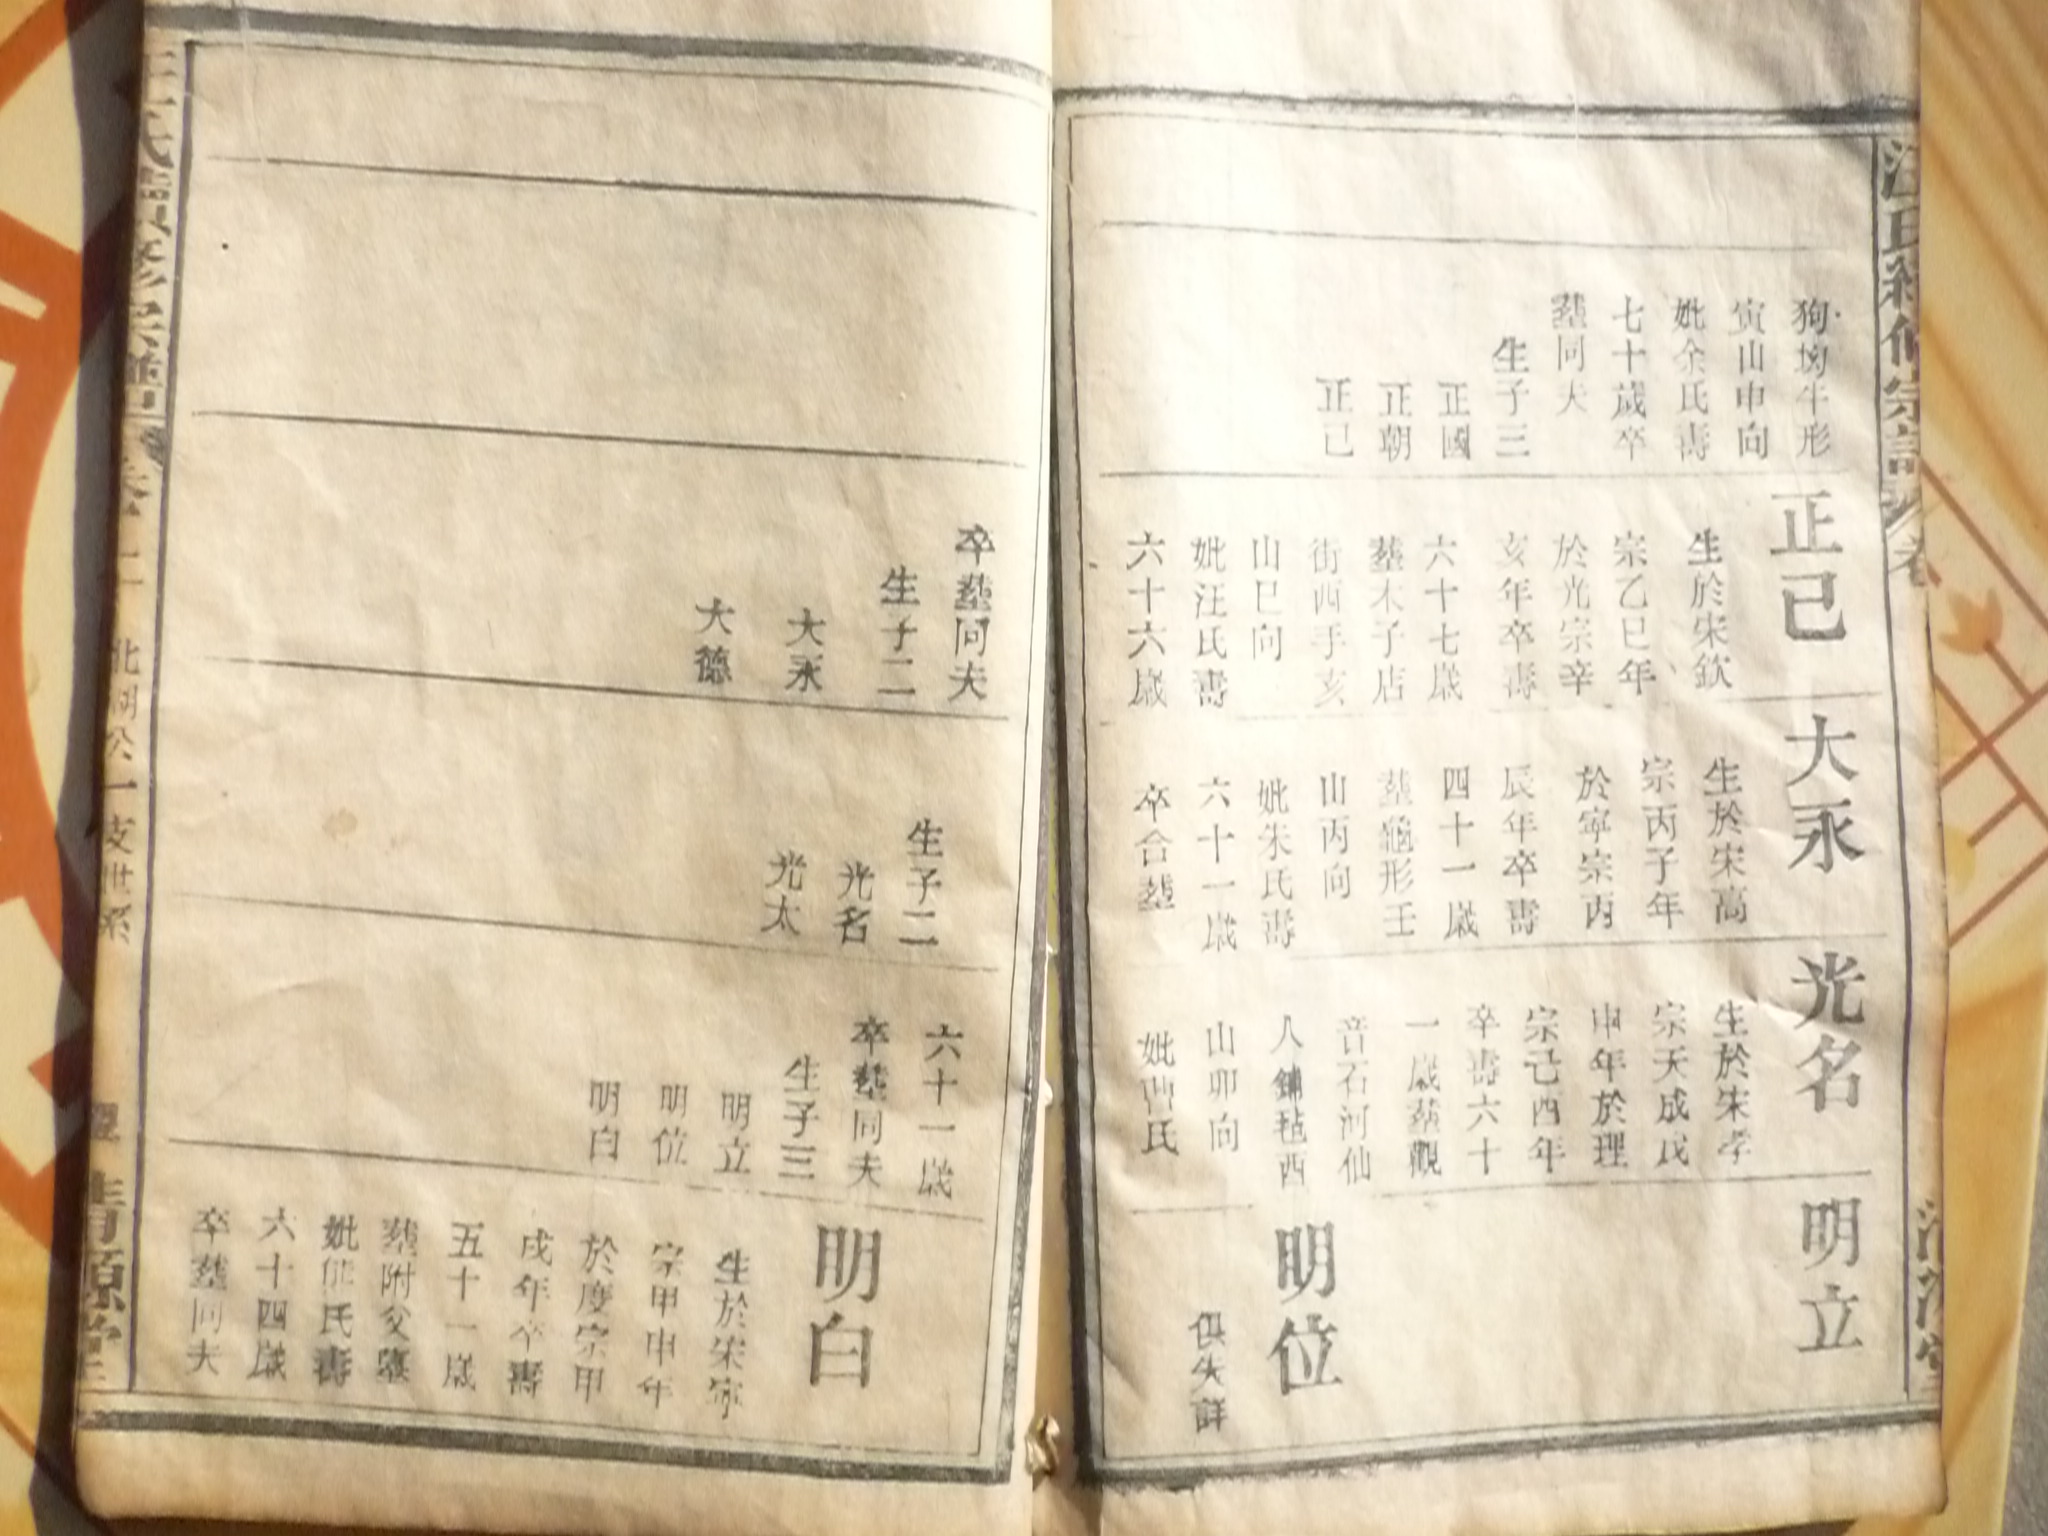 狗塲牛形
寅山申向
妣余氏壽
七十歲卒
塟同夫
生子三
正國
正朝
正己
正己
生於宋欽
宗乙巳年
於光宗辛
亥年卒壽
六十七歲
塟木子店
街西手亥
山巳向
妣汪氏壽
六十六歲
大永
生於宋高
宗丙子年
於寧宗丙
辰年卒壽
四十一歲
塟龜形壬
山丙向
妣朱氏壽
六十一歲
卒合塟
光名
生於宋孝
宗天成戊
申年於理
宗己酉年
卒壽六十
一歲塟觀
音石河仙
人鋪毡西
山卯向
妣曹氏
明立
明位
俱失詳
卒塟同夫
生子二
大永
大德
生子二
光名
光太
六十一歲
卒塟同夫
生子三
明立
明位
明白
明白
生於宋寧
宗甲申年
於度宗甲
戌年卒壽
五十一歲
塟附父墓
妣熊氏壽
六十四歲
卒塟同夫
氏續修宗譜
卷二
北湖公一支世系
清源堂